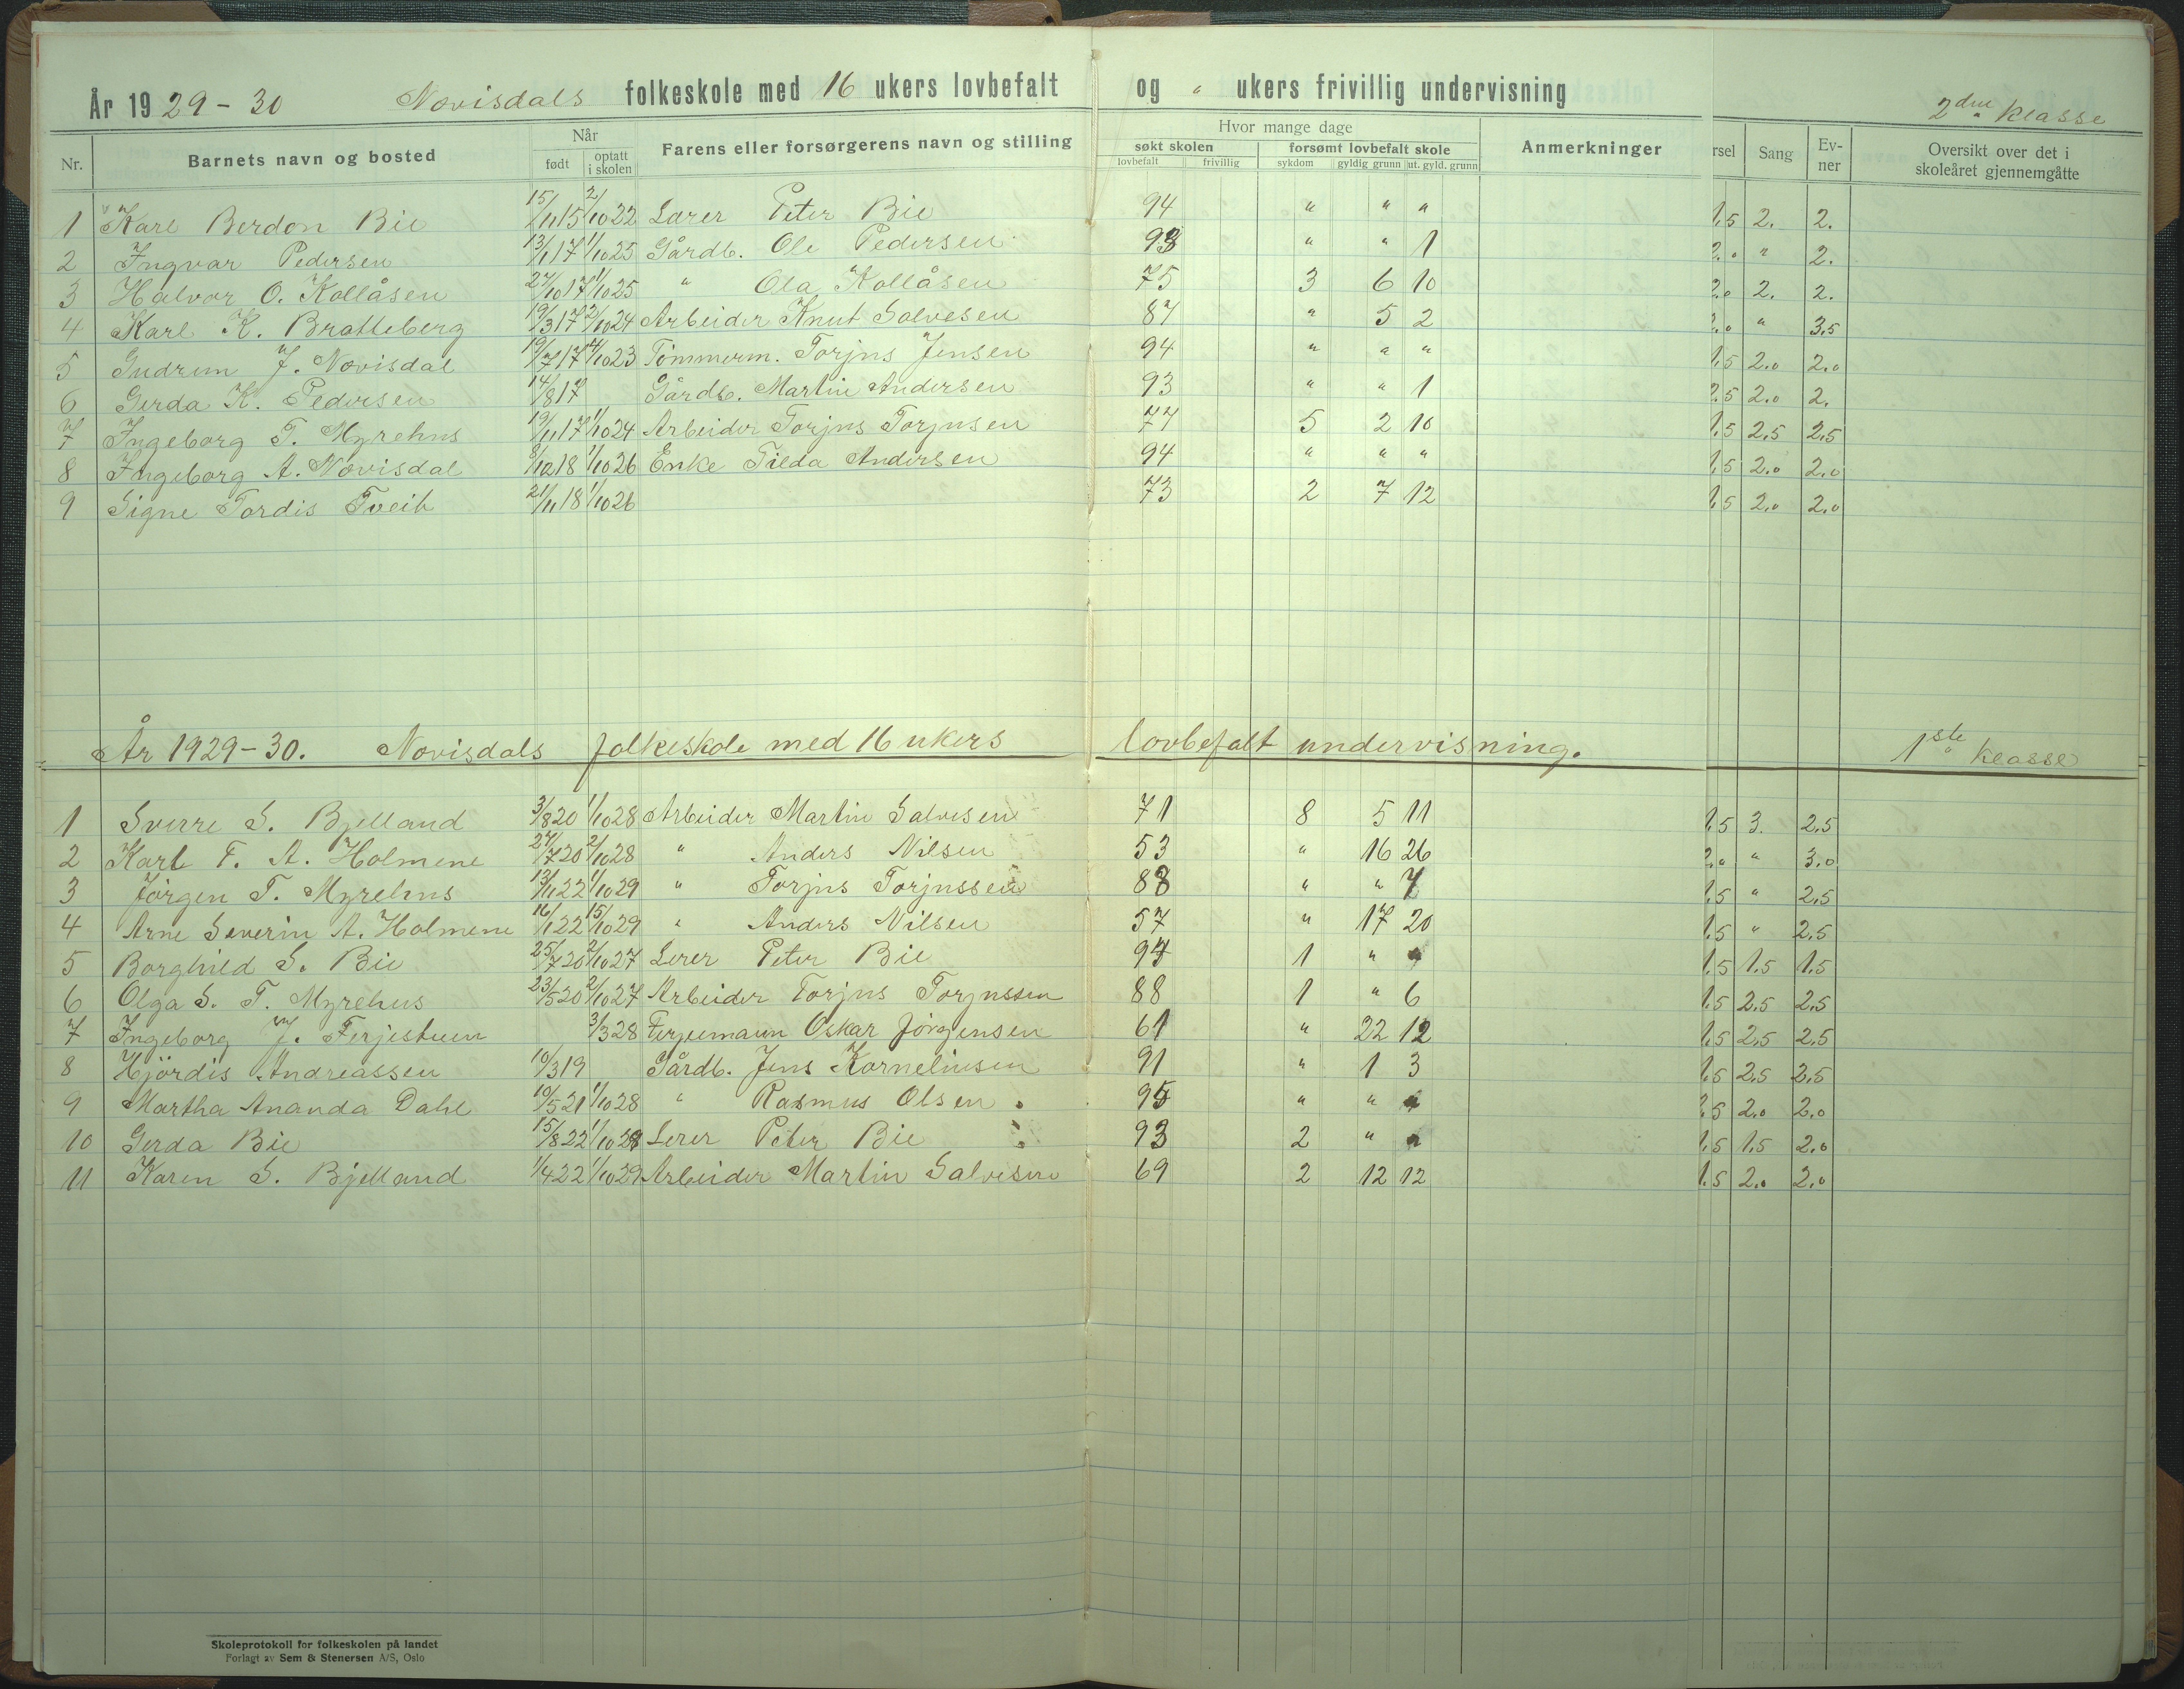 År 1929-30 Novisdals folkeskole med 16 ukers lovbefalt og " ukers frivillig undervisning
2den klasse
Nr. Barnets navn og bosted Når født optatt i skolen Farens eller forsørgerens navn og stilling Hvor mange dage søkt skolen lovbefalt frivillig forsømt lovbefalt skole sykdom gyldig grunn ut. gyld. grunn Anmerkninger rsel Sang Ev-ner Oversikt over det i skoleåret gjennemgåtte
1 Karl Berdon Bie 15/11 15 2/10 22 Lærer Peter Bie 94 " " " 1,5 2. 2.
2 Ingvar Pedersen 13/1 17 1/10 25 Gårdb. Ole Pedersen 93 " " 1 2.0 " 2.
3 Halvor O. Kollåsen 27/10 17 1/10 25 " Ola Kollåsen 75 3 6 10 2.0 2. 2.
4 Karl K. Bratteberg 19/3 17 2/10 24 Arbeider Knut Salvesen 87 " 5 2 2.0 " 3.5
5 Gudrun J. Novisdal 19/7 17 4/10 23 Tømmerm. Torjus Jensen 94 " " " 1,5 2.0 2.0
6 Gerda K. Pedersen 14/8 17 Gårdb. Martin Andersen 93 " " 1 2.5 2.0 2.
7 Ingeborg T. Myrehus 19/11 17 1/10 24 Arbeider Torjus Torjusen 77 5 2 10 1,5 2,5 2,5
8 Ingeborg A. Novisdal 8/12 18 1/10 26 Enke Tilda Andersen 94 " " " 1,5 2.0 2.0
9 Signe Tordis Tveit 21/11 18 1/10 26 73 2 7 12 1,5 2.0 2.0
År 1929-30. Novisdals folkeskole med 16 ukers lovbefalt undervisning. 1ste klasse
1 Sverre S. Bjelland 3/8 20 1/10 28 Arbeider Martin Salvesen 71 8 5 11 1,5 3. 2.5
2 Karl F. A. Holmene 27/7 20 2/10 28 " Anders Nilsen 53 " 16 26 2.0 " 3.0
3 Jörgen T. Myrehus 13/11 22 1/10 29 " Torjus Torjussen 88 " " 7 1,5 " 2,5
4 Arne Severin A. Holmene 16/1 22 15/10 29 " Anders Nilsen 57 " 17 20 1.5 " 2.5
5 Borghild S. Bie 25/7 20 2/10 27 Lerer Peter Bie 94 1 " " 1,5 1.5 1.5
6 Olga S. T. Myrehus 23/5 20 2/10 27 Arbeider Torjus Torjussen 88 1 " 6 1,5 2.5 2,5
7 Ingeborg J. Ferjestuen 3/3 28 Ferjemann Oskar Jörgensen 61 " 22 12 1,5 2,5 2.5
8 Hjördis Andreassen 10/3 19 Gårdb. Jens Korneliusen 91 " 1 3 1.5 2.5 2,5
9 Martha Ananda Dahl 10/5 21 1/10 28 " Rasmus Olsen 95 " " " 2,5 2.0 2.0
10 Gerda Bie 15/8 22 1/10 28 Lerer Peter Bie 93 2 " " 1,5 1.5 2.0
11 Karen S. Bjelland 1/4 22 1/10 29 Arbeider Martin Salvesen 69 2 12 12 1.5 2.0 2.0
Skoleprotokoll for folkeskolen på landet
Forlagt av Sem & Stenersen A/S, Oslo